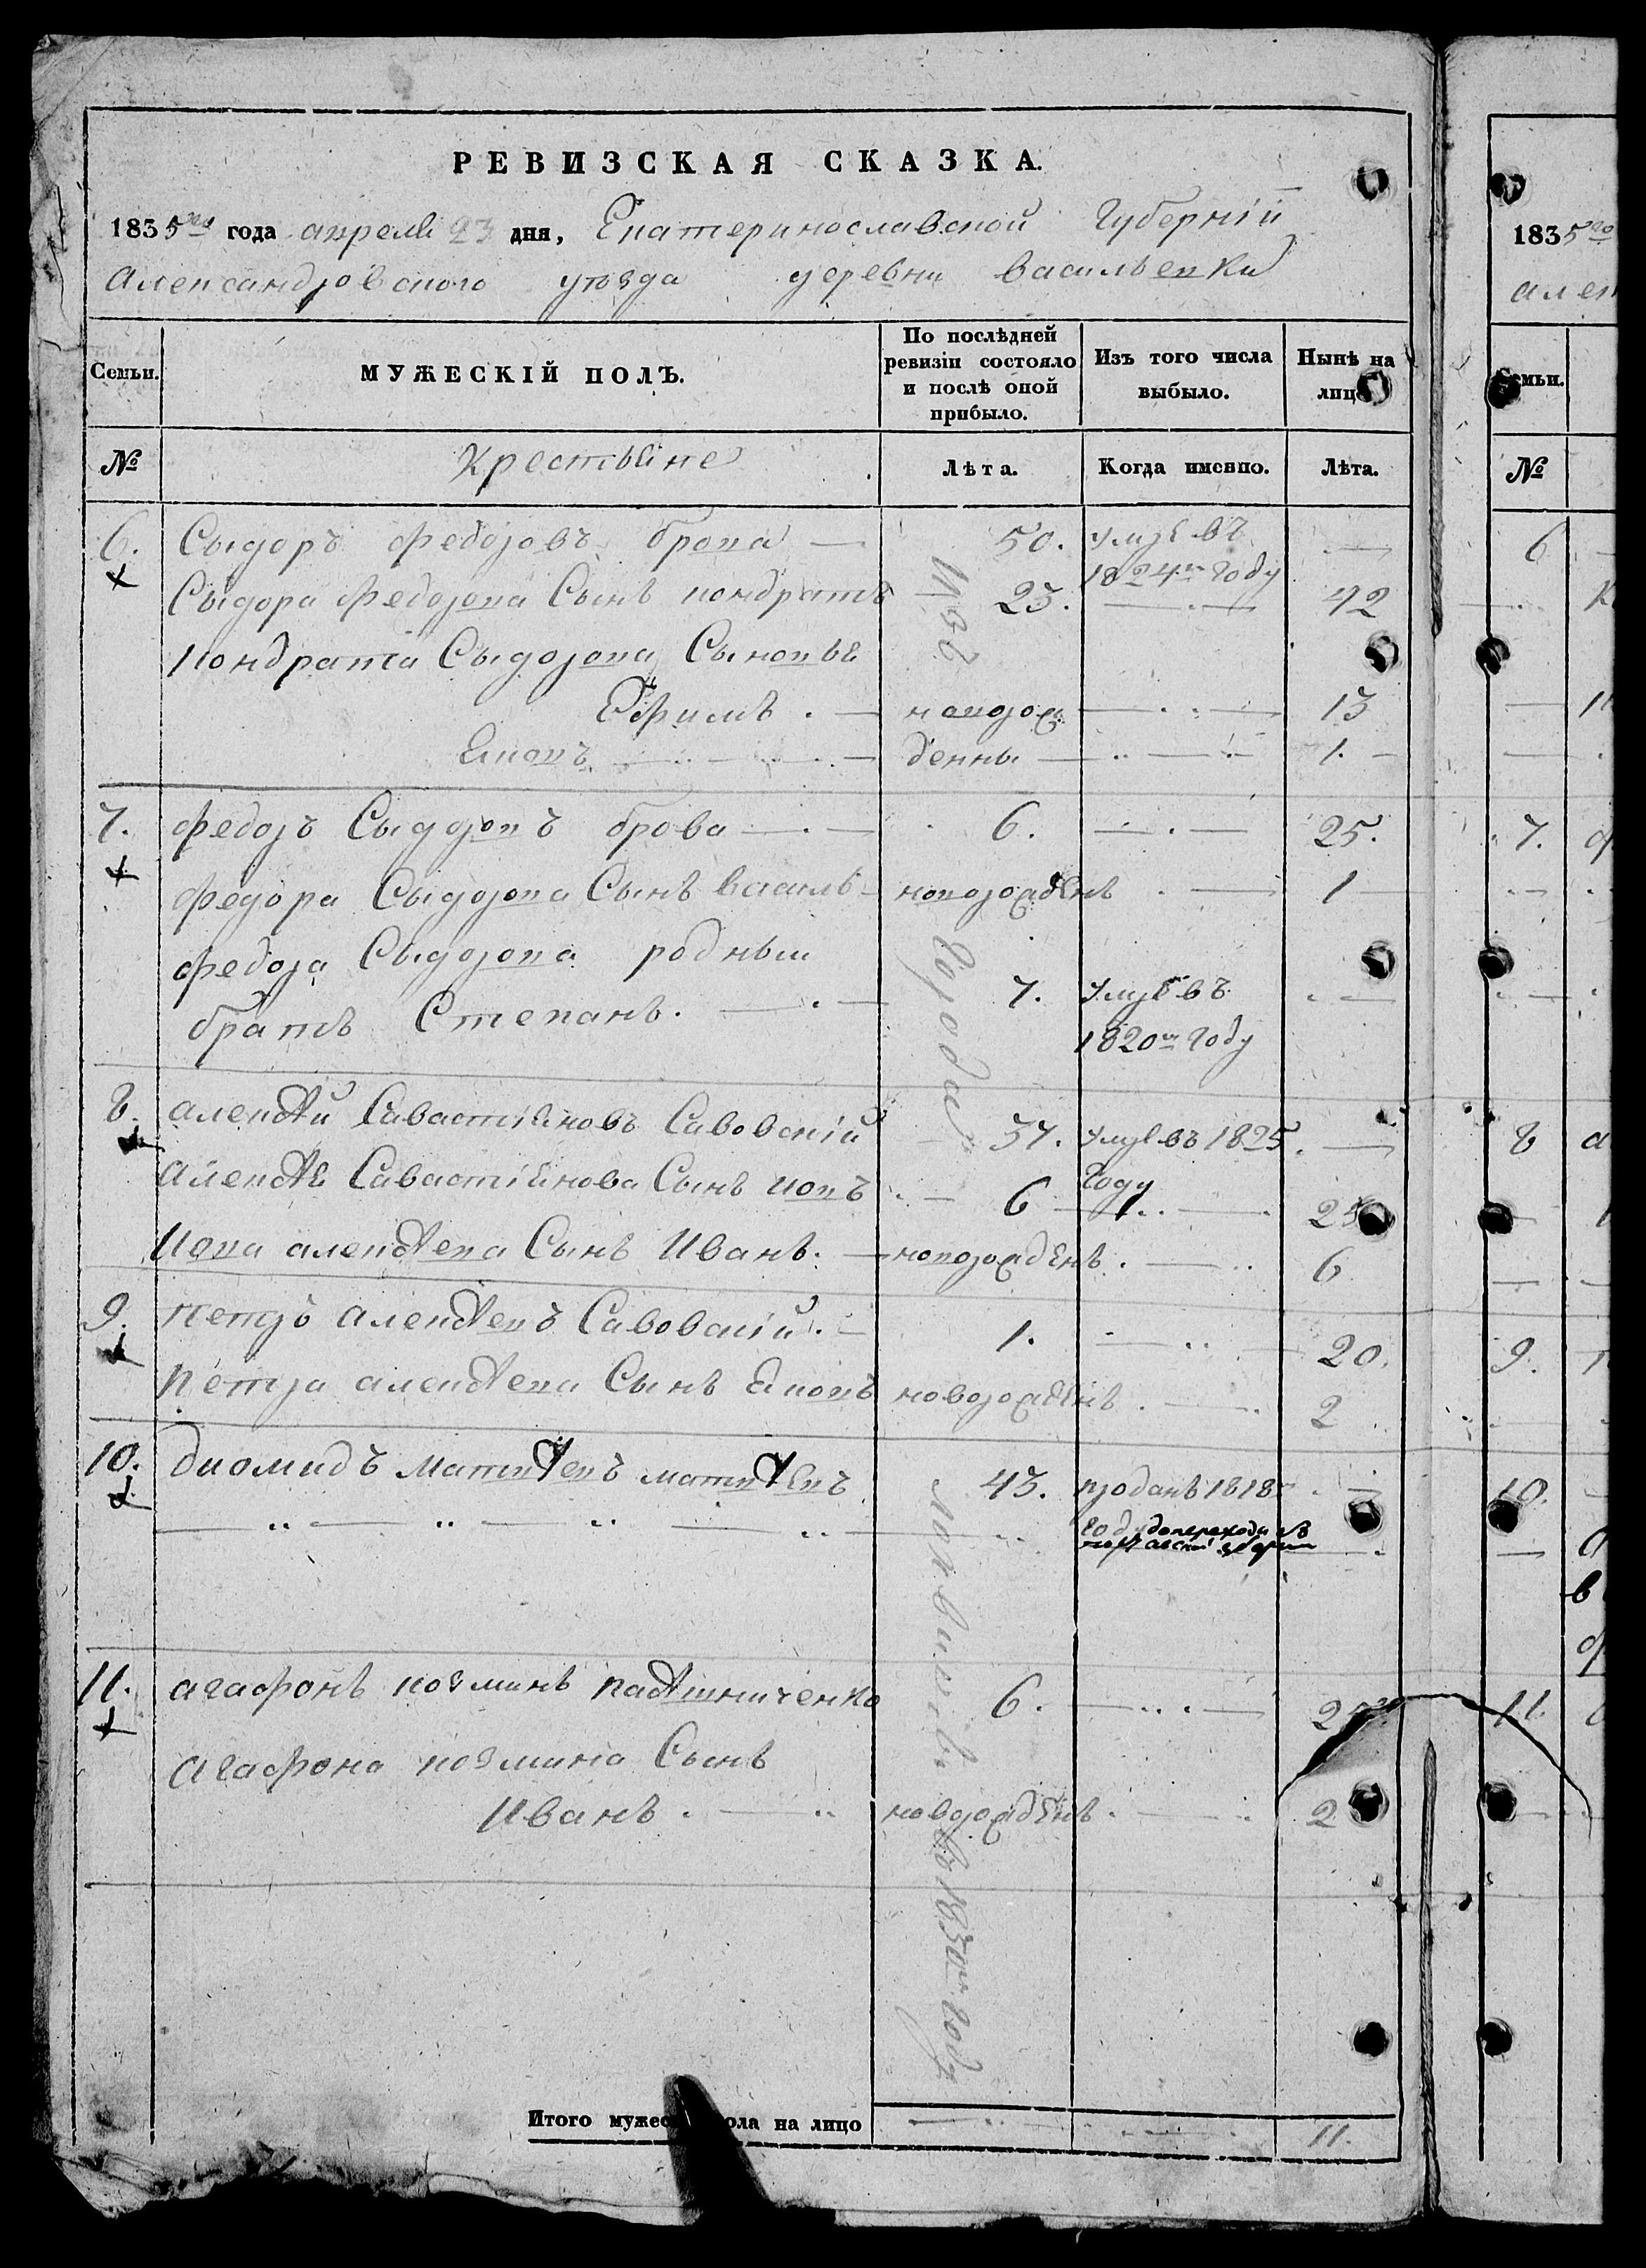 РЕВИЗСКАЯ СКАЗКА.
1835го года апреля 23 дня, Екатеринославской Губерніи
александровского уѣзда деревни васильевки
Семьи. МУЖЕСКІЙ ПОЛЪ. По послѣдней ревизіи состояло и послѣ оной прибыло. Изъ того числа выбыло. Нынѣ на лицо
№ Крестьяне Лѣта. Когда именно. Лѣта.
6. Сыдоръ Федоровъ брова — 50. умре въ 1824м году —
Сыдора Федорова Сынъ кондратъ — 23. 42
кондратія Сыдорова Сыновья
Ефимъ . — новорож 13
Яковъ — денны 1.
7. Федоръ Сыдоровъ брова — 6. 25.
Федора Сыдорова Сынъ василь — новорожденъ 1
Федора Сыдорова родный
братъ Степанъ. — 7. умре въ
1820м году
8. алексѣй Савастіяновъ Савовскій 37. умре въ 1825 году —
алексѣя Савастіянова Сынъ иовъ 6 25
Иова алексѣева Сынъ Иванъ. — новорожденъ. 6
9. Петръ алексѣевъ Савовскій. — 1. 20.
Петра алексѣева Сынъ Яковъ новорожденъ. 2
10. диомидъ матвѣевъ матвѣевъ 43. проданъ 1818 —
году
11. агафонъ козминъ 6. 25
агафона козмина Сынъ
Иванъ . — новорожденъ. 2
Из города
во 1830м году
Итого мужес ола на лицо 11.
1835го
ален
Семьи.
№
6
7.
8
9.
10.
11.